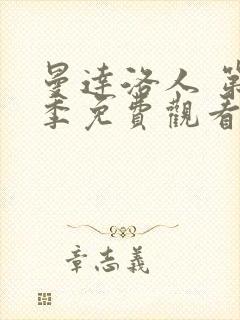 曼達洛人 第
季免費觀看
章志義